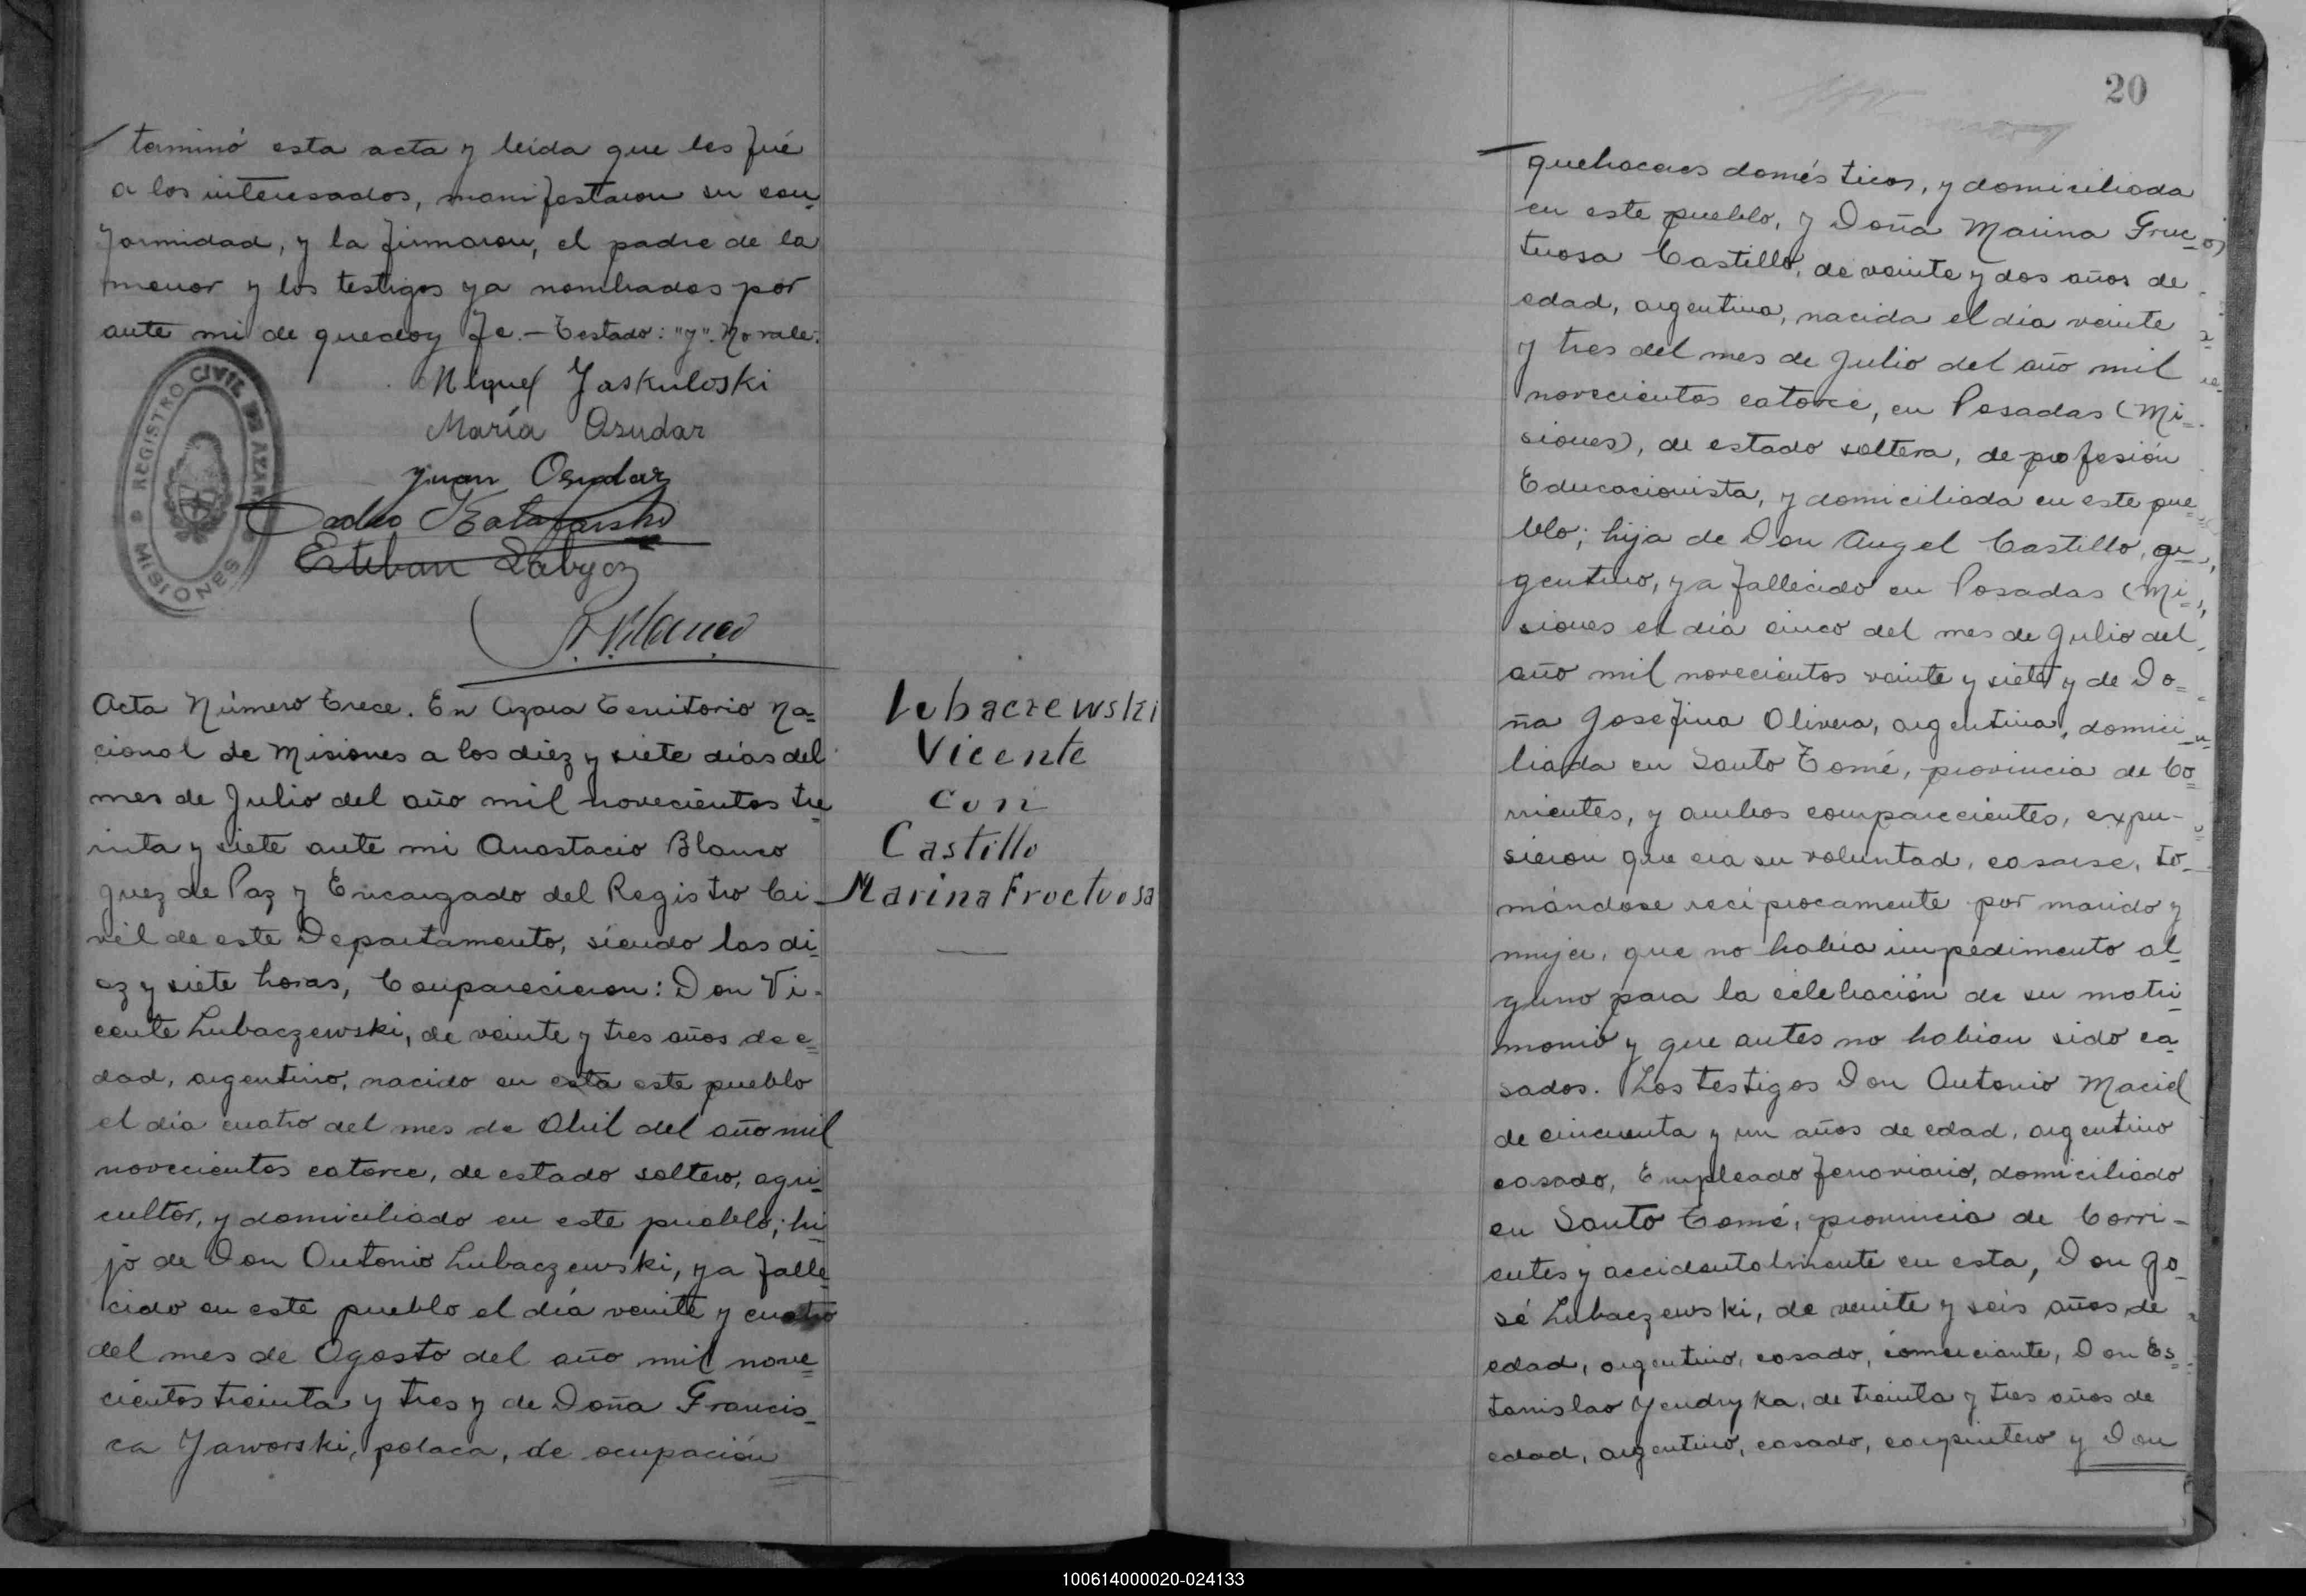 terminó esta acta y leida que les fué
a los interesados, manifestaron su con
formidad, y la firmaron, el padre de la
menor y los testigos ya nombrados por
ante mi de que doy fe.- Testado: "y". No vale.
REGISTRO CIVIL DE AZARA
MISIONES
Miguel Jaskuloski
María Osudar
Juan Osudar
Pedro
Esteban
A. Blanco
Acta Número Trece. En Azara Territorio Na=
cional de Misiones a los diez y siete días del
mes de Julio del año mil novecientos tre
inta y siete ante mi Anastacio Blanco
Juez de Paz y Encargado del Registro Ci
vil de este Departamento, siendo las di
ez y siete horas, Comparecieron: Don Vi-
cente Lubaczewski, de veinte y tres años de e=
dad, argentino, nacido en esta este pueblo
el día cuatro del mes de Abril del año mil
novecientos catorce, de estado soltero, agri
cultor, y domiciliado en este pueblo; hi
jo de Don Antonio Lubaczewski, ya falle
cido en este pueblo el día veinte y cuatro
del mes de Agosto del año mil nove=
cientos treinta y tres y de Doña Francis_
ca Jaworski, polaca, de ocupación
Lubaczewski
Vicente
con
Castillo
Marina Fructuosa
20
quehaceres domésticos, y domiciliada
en este pueblo, y Doña Marina Fruc=
tuosa Castillo, de veinte y dos años de
edad, argentina, nacida el día veinte
y tres del mes de Julio del año mil
novecientos catorce, en Posadas (Mi=
siones), de estado soltera, de profesión
Educacionista, y domiciliada en este pue
blo; hija de Don Angel Castillo, ar
gentino, ya fallecido en Posadas (Mi=
siones el día cinco del mes de Julio del
año mil novecientos veinte y siete y de Do=
ña Josefina Olivera, argentina, domici
liada en Santo Tomé, provincia de Co=
rrientes, y ambos comparecientes, expu-
sieron que era su voluntad, casarse, to-
mándose recíprocamente por marido y
mujer, que no había impedimento al
guno para la celebración de su matri
monio y que antes no habian sido ca
sados. Los testigos Don Antonio Maciel
de cincuenta y un años de edad, argentino
casado, Empleado ferroviario, domiciliado
en Santo Tomé, provincia de Corri-
entes y accidentalmente en esta, Don Jo_
sé Lubaczewski, de veinte y seis años de
edad, argentino, casado, comerciante, Don Es=
tanislao Yendryka, de treinta y tres años de
edad, argentino, casado, carpintero y Don
100614000020-024133